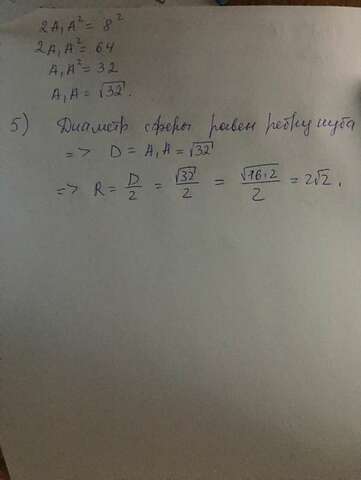 2A₁A² = 8²
2A₁A² = 64
A₁A² = 32
A₁A = √32.
5) Диаметр сферы равен ребру куба
=> D = A₁A = √32
=> R = D/2 = √32/2 = √16·2/2 = 2√2.